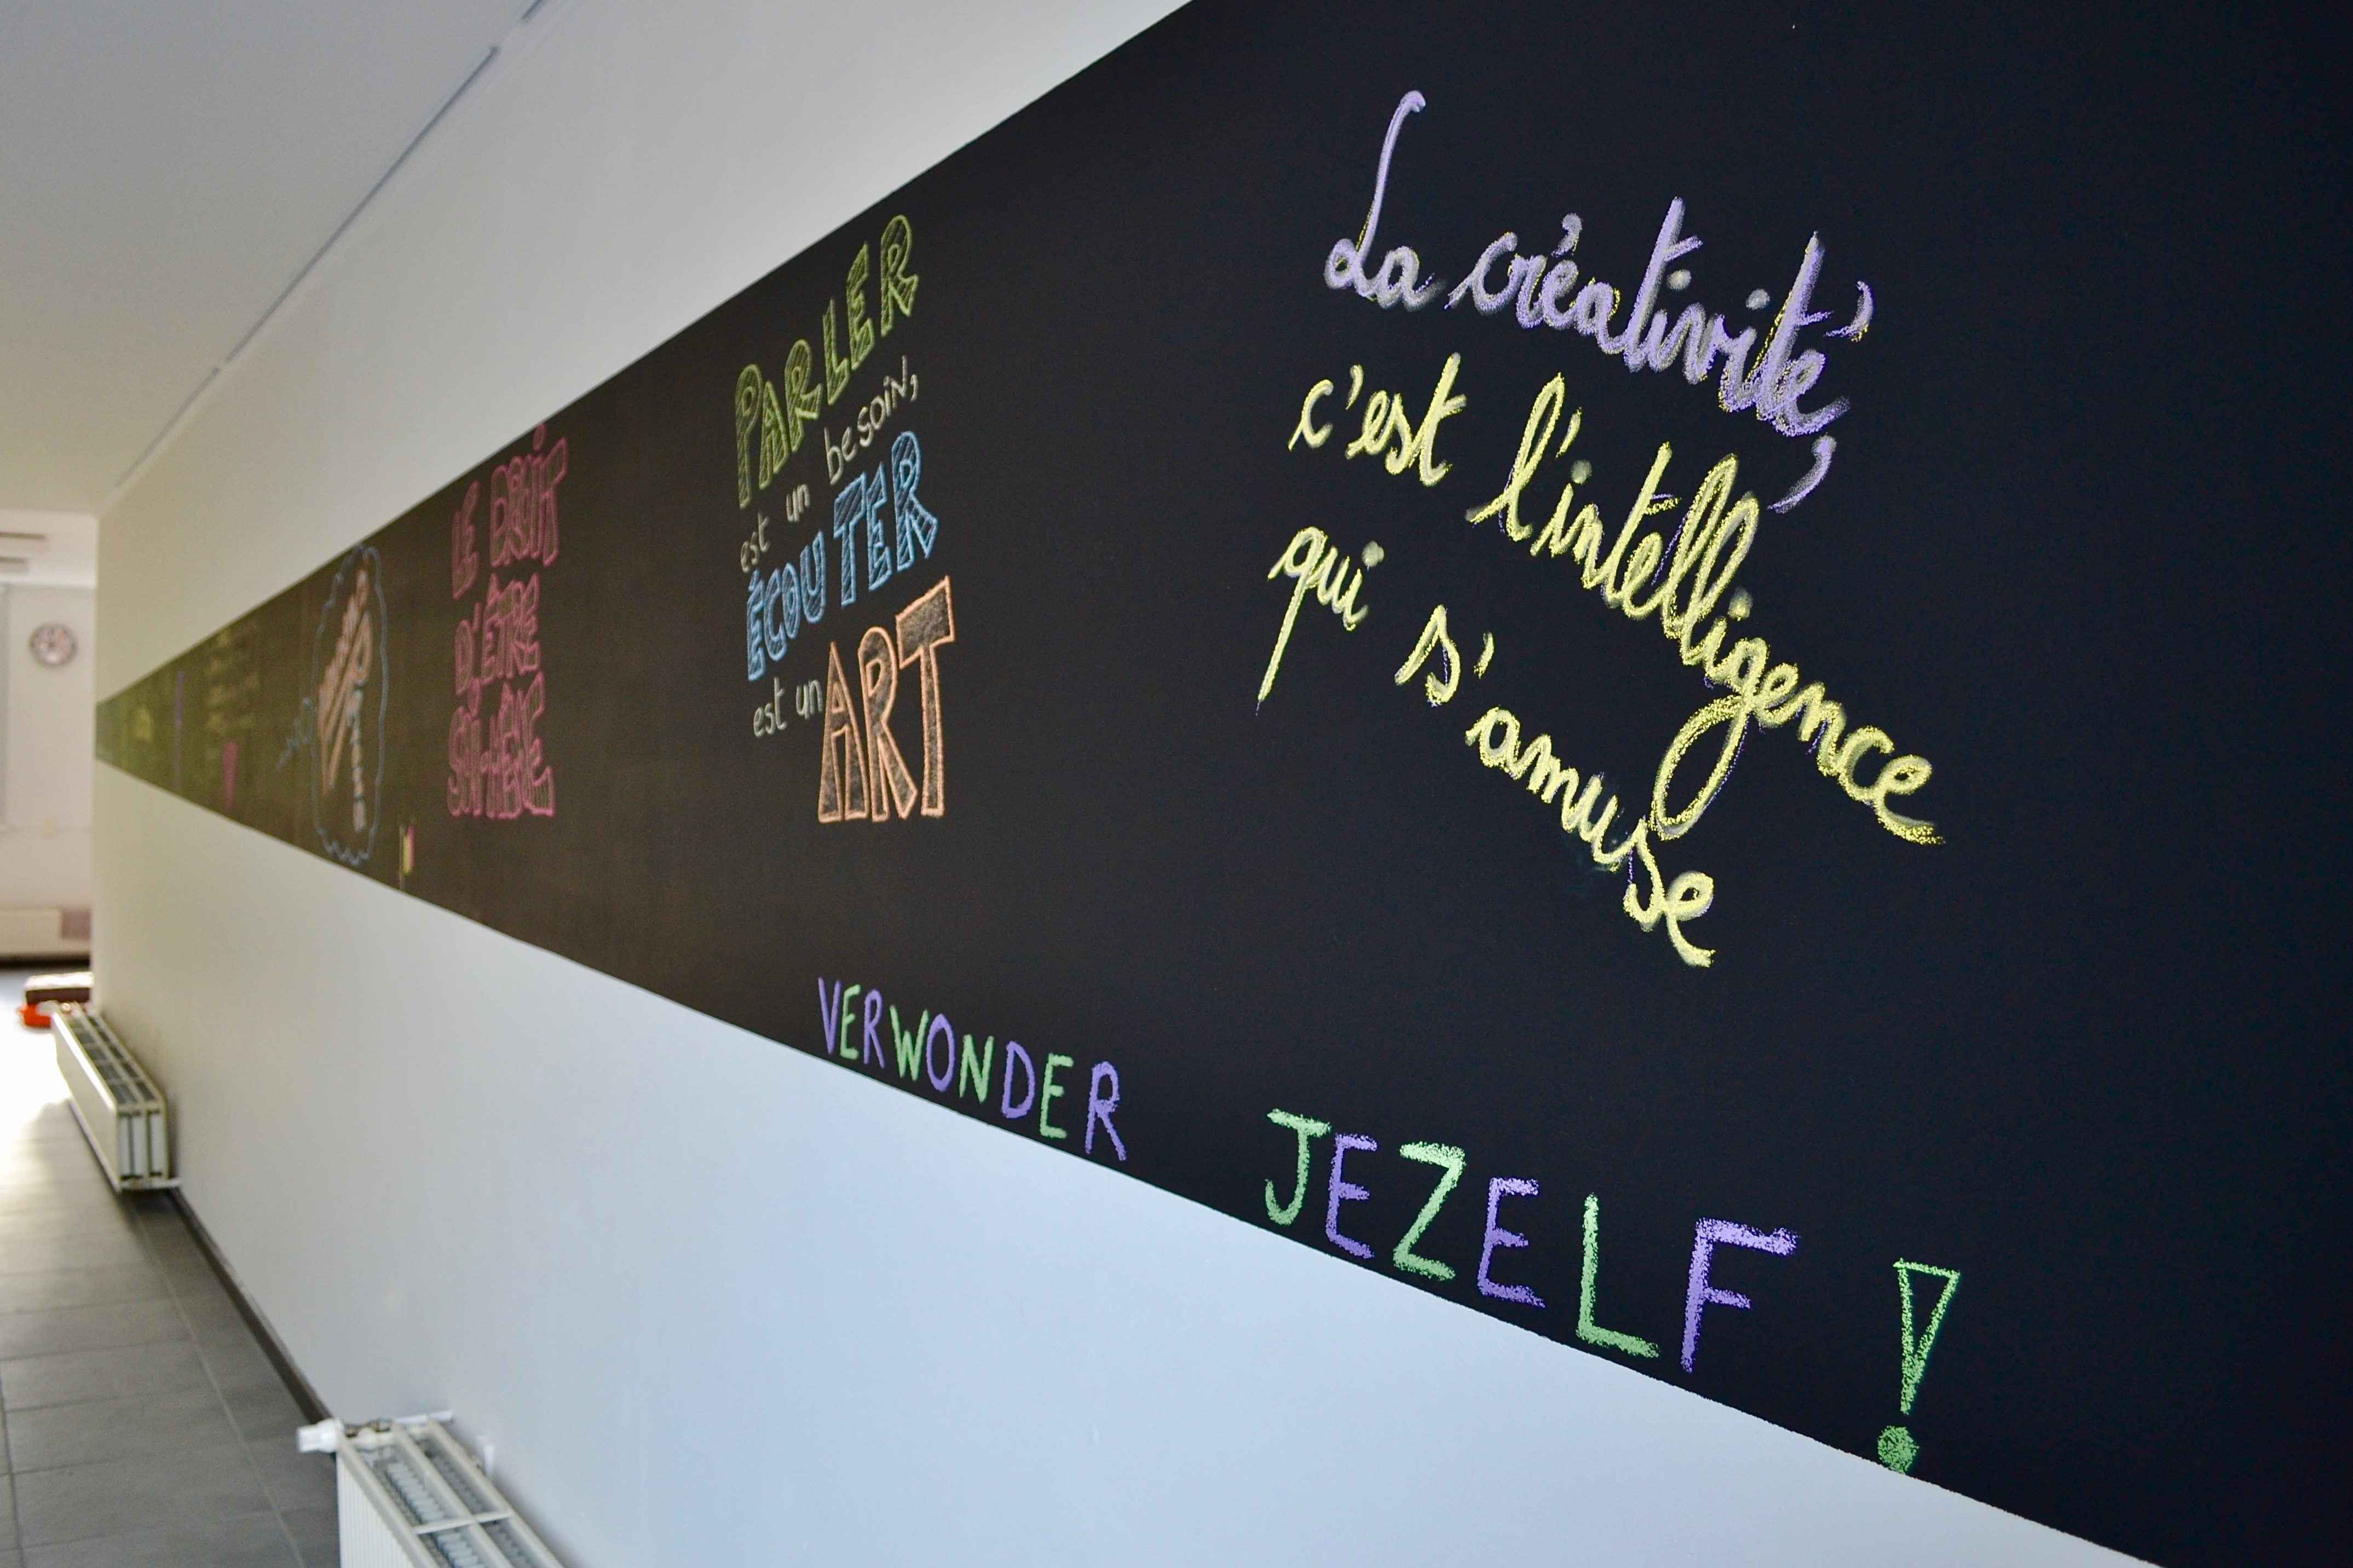 LE DROIT
D'ÊTRE
PARLER
est un besoin,
ÉCOUTER
est un ART
La créativité,
c'est l'intelligence
qui s'amuse
VERWONDER JEZELF !